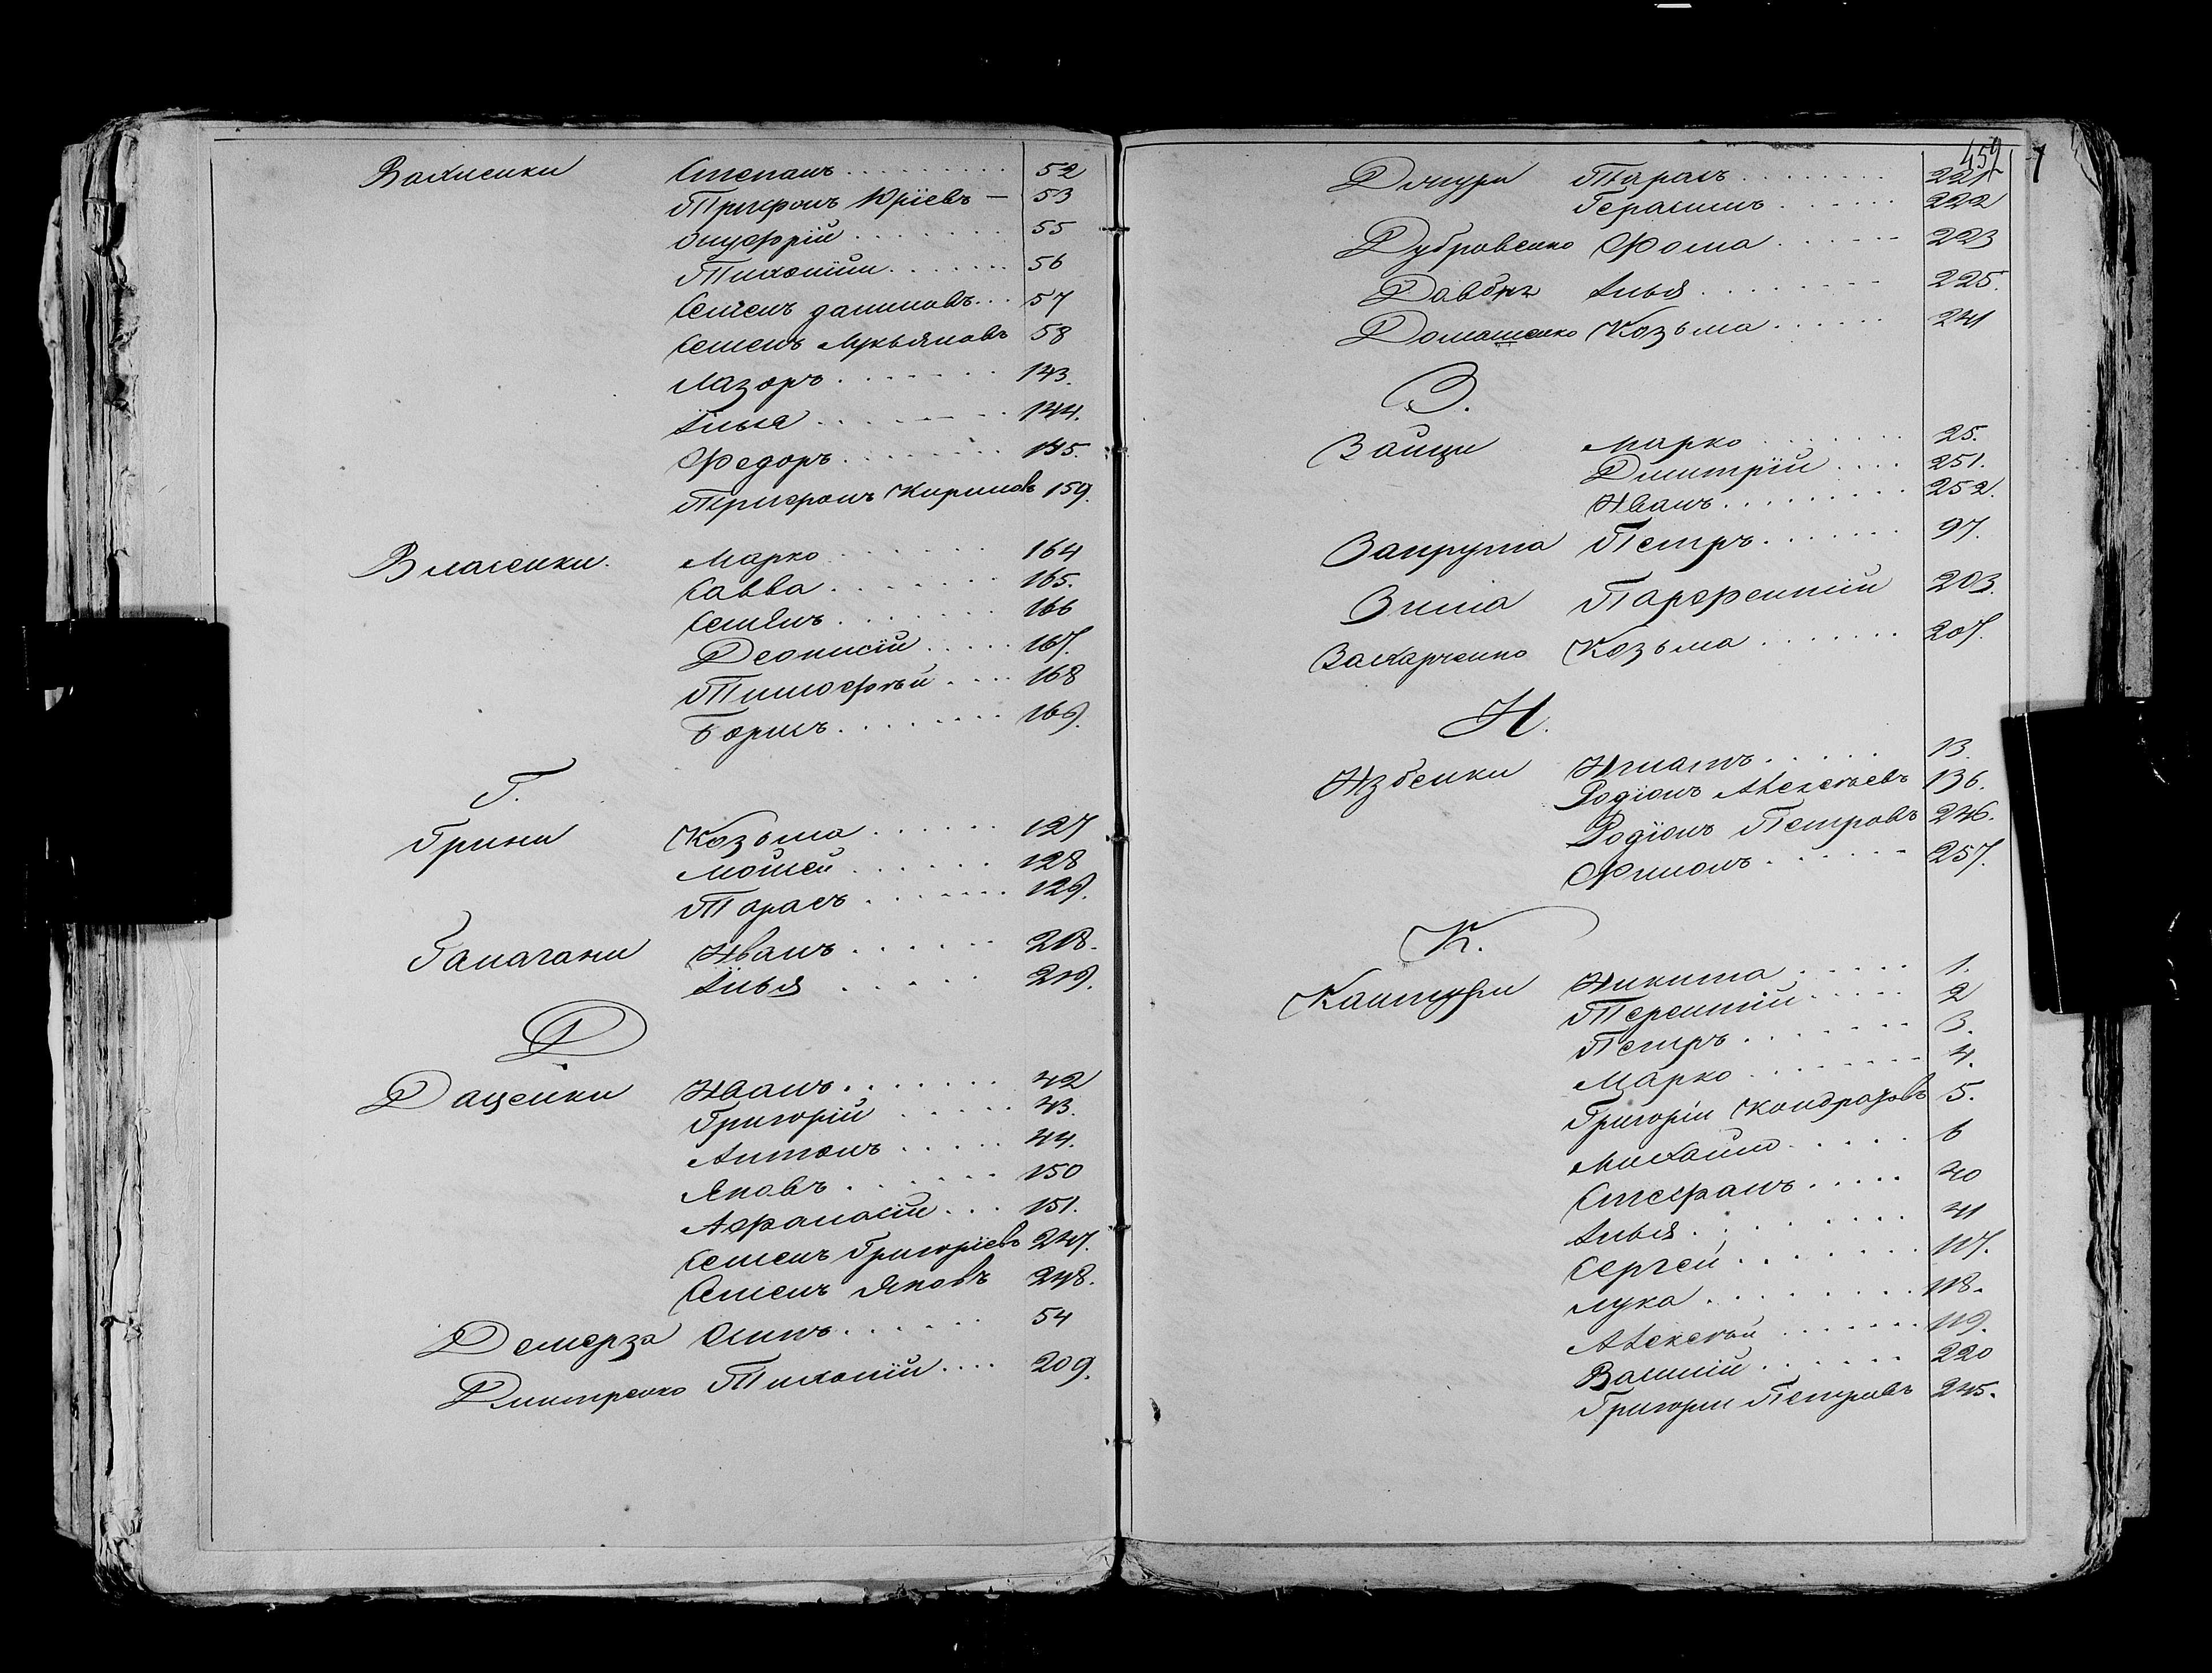 Вахненки Степанъ 52
Трифонъ Юріевъ — 53
Онуфрій 55
Тихоній 56
Семенъ Даниловъ 57
Семенъ Лукьяновъ 58
Лазоръ 143.
Илья 144.
Федоръ 145.
Трифонъ Кириловъ 159.
Власенки. Марко 164
Савва 165.
Семенъ 166
Деонисій 167.
Тимофѣй 168
Борисъ 169.
Г.
Грини Козьма 127
Мойсей 128
Тарасъ 129.
Галагани Иванъ 218.
Илья 219.
Д.
Даценки Иванъ 42
Григорій 43.
Антонъ 44.
Яковъ 150
Афанасій 151.
Семенъ Григоріевъ 247.
Семенъ Яковъ 248.
Демерза Осипъ 54
Дмитренко Тихоній 209.
459
Дягури Тарасъ 221
Герасимъ 222
Дубровенко Фома 223
Довбня Илья 225.
Домашенко Козьма 241
З.
Зайци Марко 25.
Дмитрій 251.
Иванъ 252.
Закрута Петръ 97.
Зима Парфентій 203.
Захарченко Козьма 207.
И.
Избенки Игнатъ 13.
Родіонъ Алексѣевъ 136.
Родіонъ Петровъ 246.
Филонъ 257.
К.
Кантури Никита 1.
Терентій 2
Петръ 3.
Марко 4.
Григорій Кондратовъ 5.
Михайло 6
Стефанъ 40
Илья 41
Сергей 117.
Лука 118.
Алексѣй 119.
Василій 220
Григорій Петровъ 245.